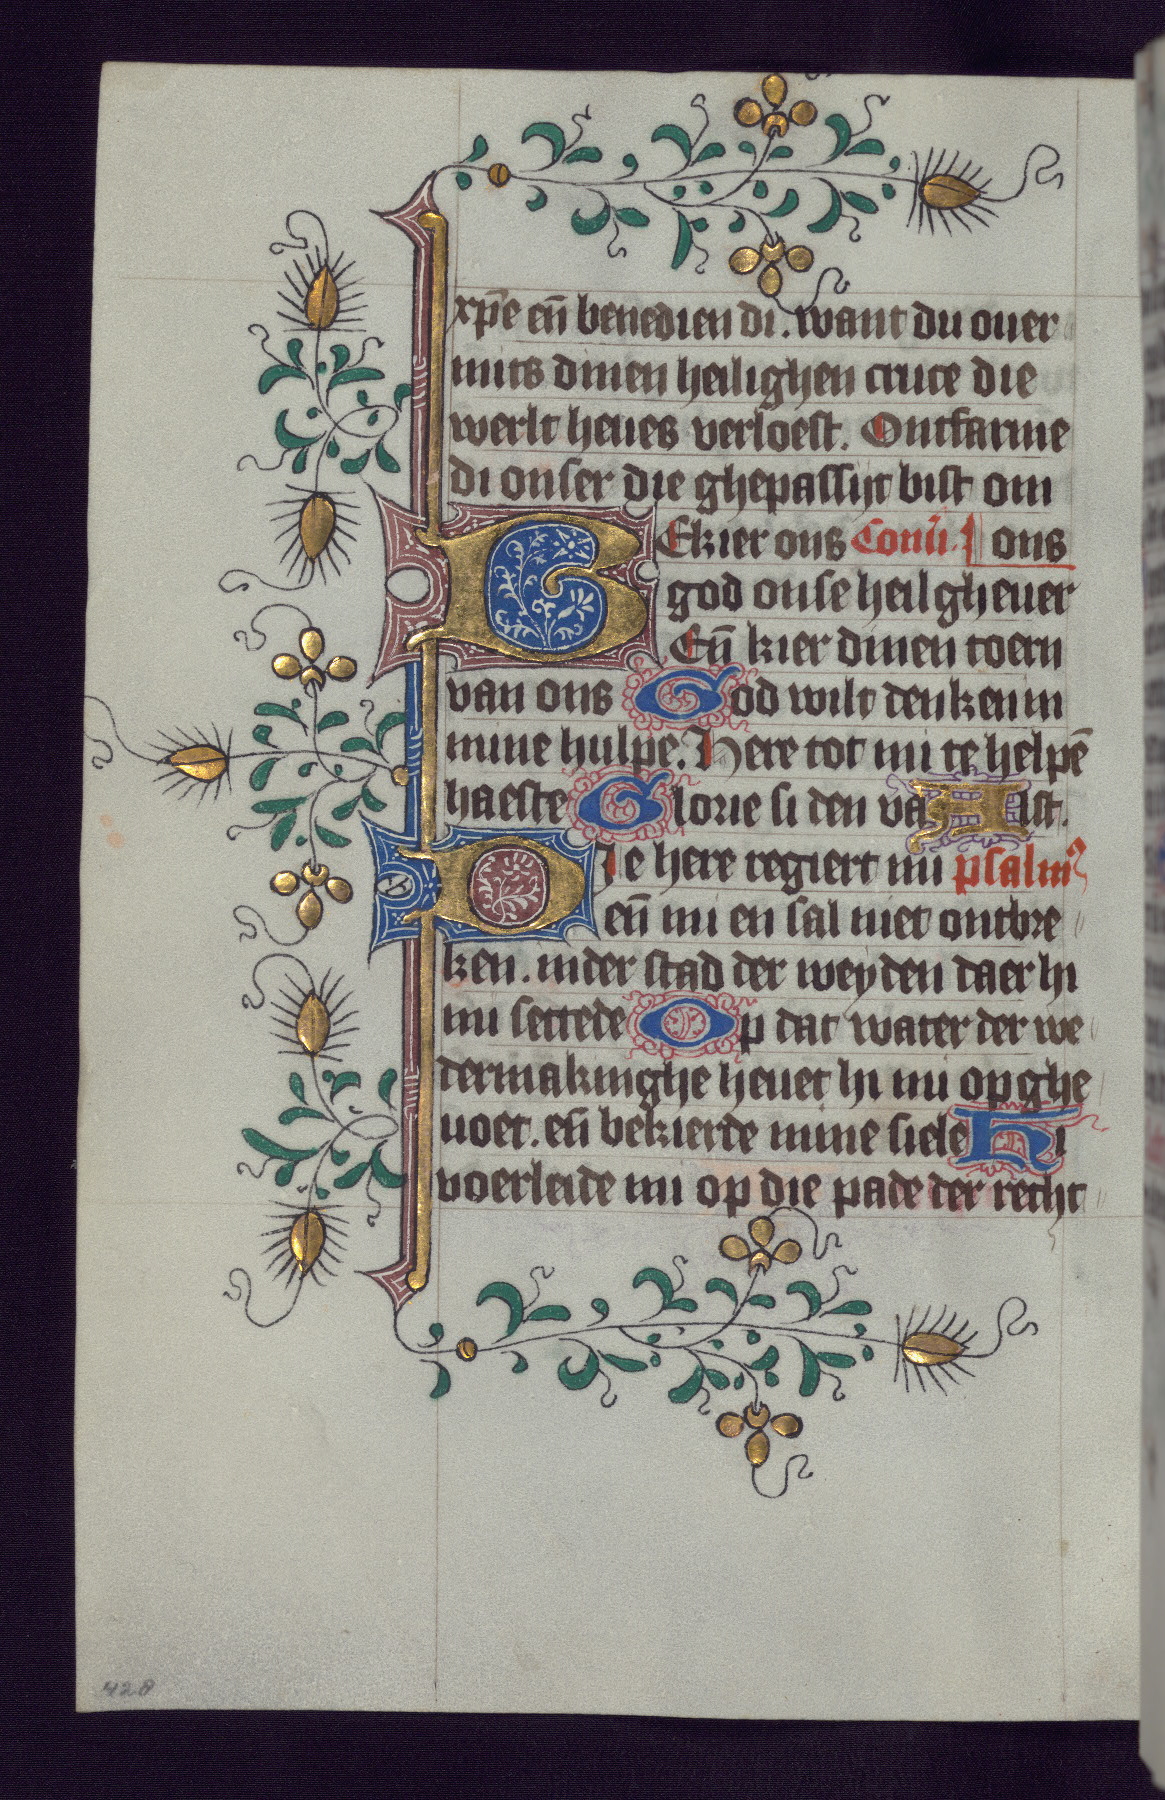 xp̄e en̄ benedien di. want du ouer
mits dinen heilighen cruce die
werlt heues verloest. Ontfarme
di onser die ghepassijt bist om
BEkier ons Conū. ¶ ons
god onse heilgheuer
En̄ kier dinen toern
van ons God wilt denken in
mine hulpe. Here tot mi te helpē
haeste Glorie si den va Alst.
DIe here regiert mi psalm
en̄ mi en sal niet ontbre
ken. inder stad der weyden daer hi
mi settede Op dat water der we
dermakinghe heuet hi mi opghe
uoet. en̄ bekierde mine siele Hi
voerleide mi op die pade der recht
428